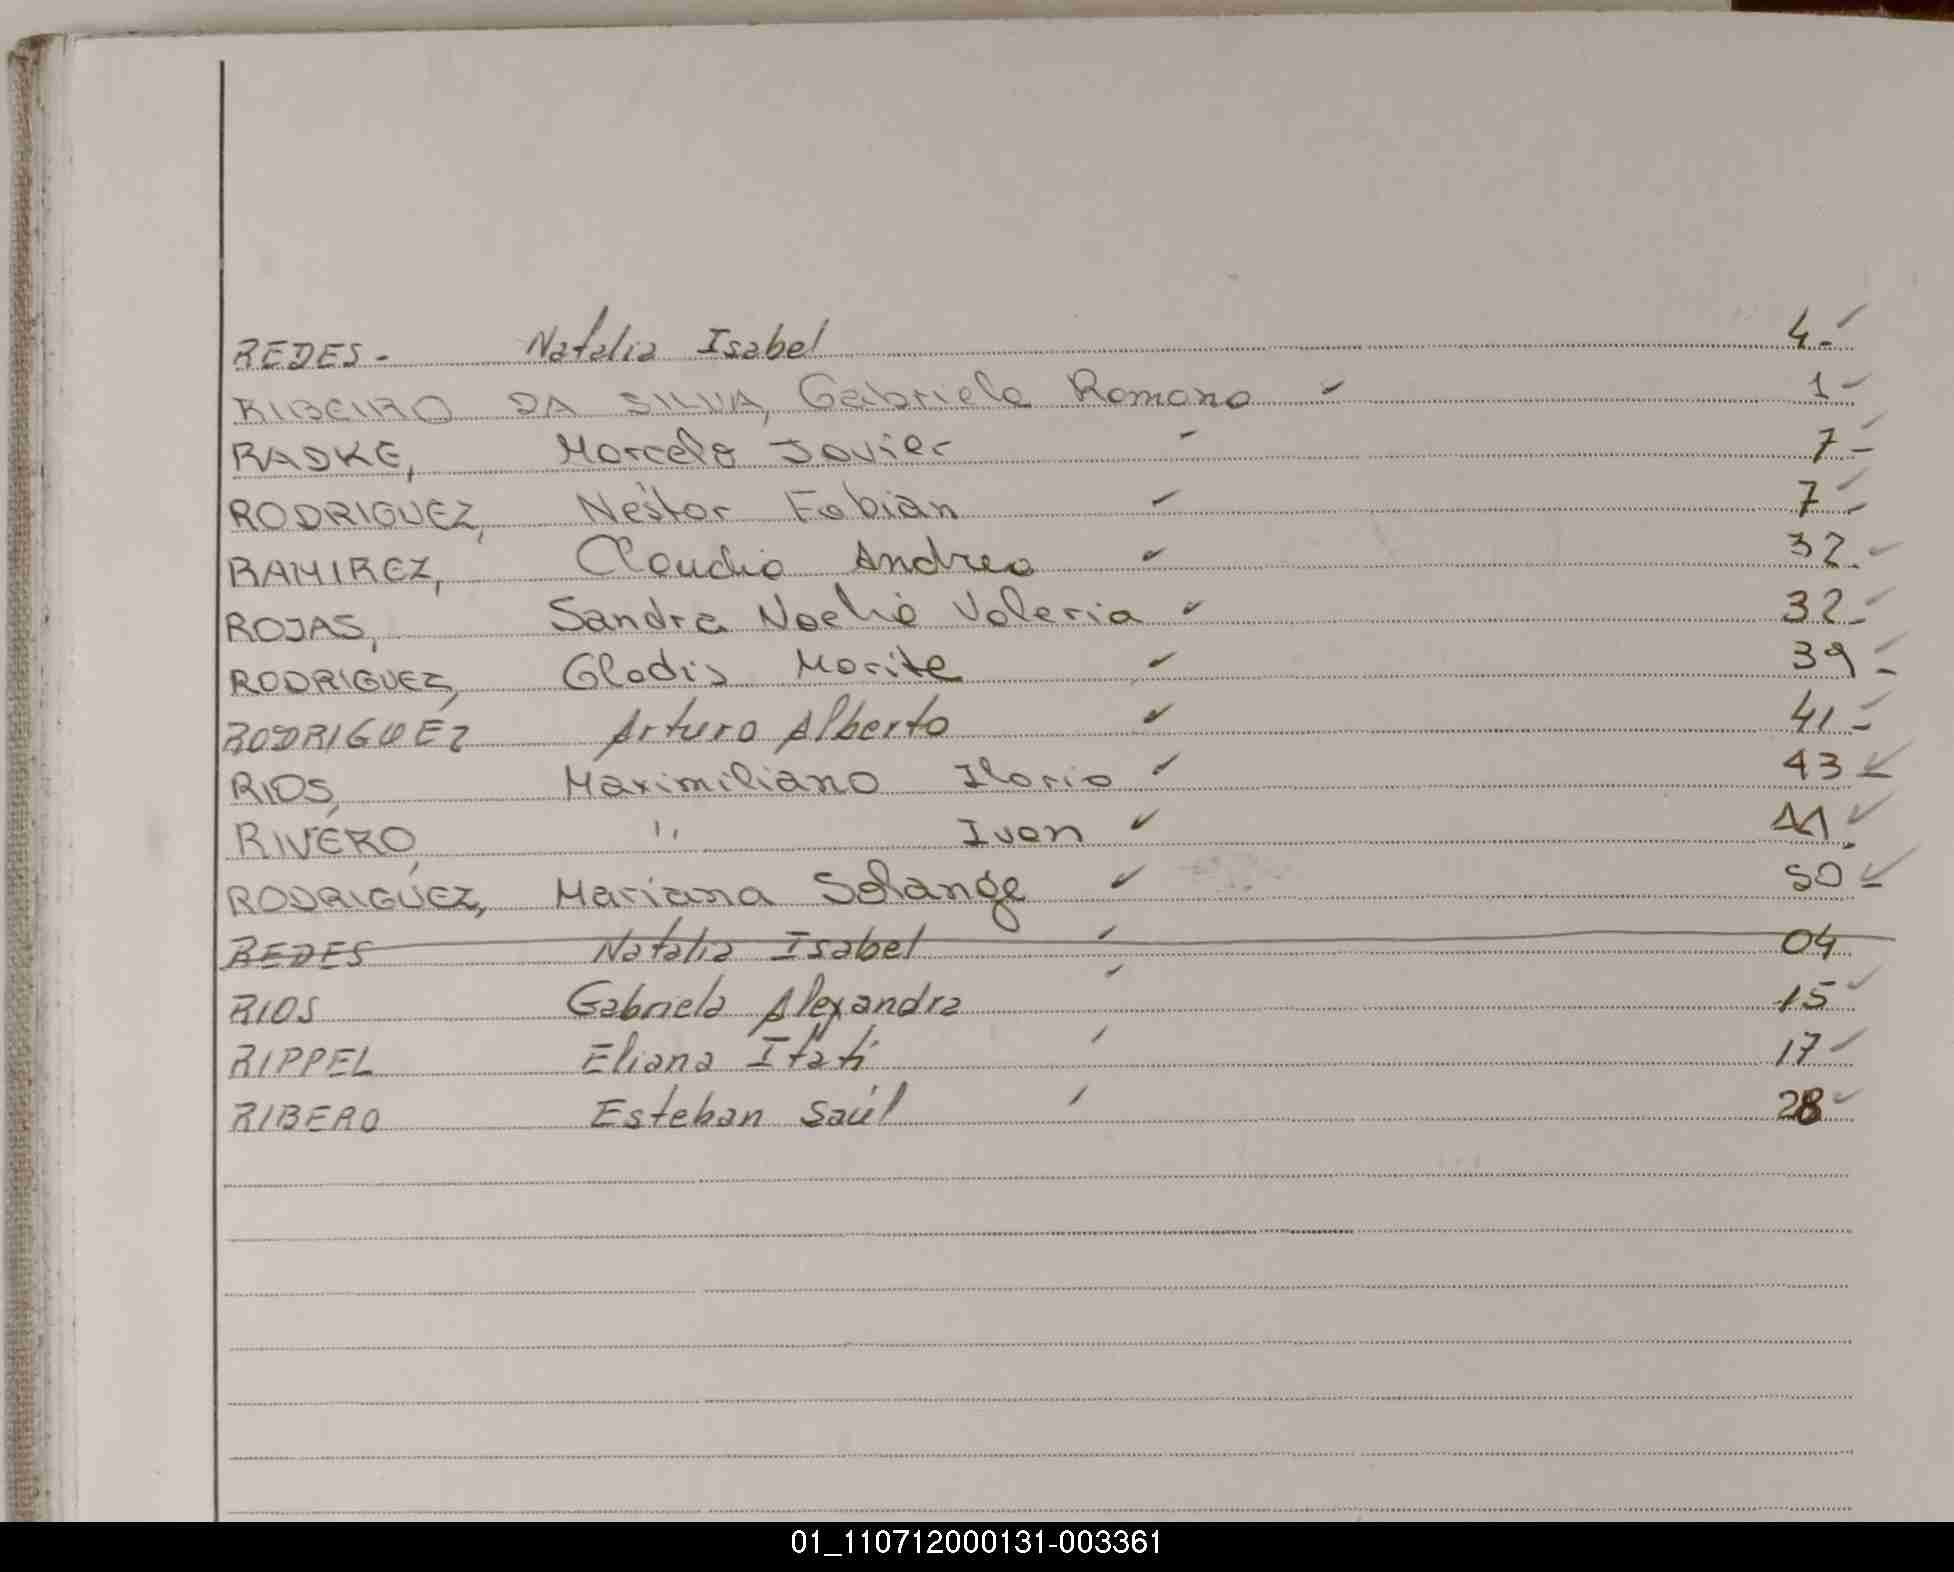 REDES- Natalia Isabel 4.-
RIBEIRO DA SILVA, Gabriela Romana 1
RADKE, Marcelo Javier 7-
RODRIGUEZ, Nestor Fabián 7-
RAMIREZ, Claudia Andrea 32.
ROJAS, Sandra Noelia Valeria 32-
RODRIGUEZ, Gladis Marite 39-
RODRIGUEZ Arturo Alberto 41-
RIOS, Maximiliano Ilario 43-
RIVERO, " Ivan 44.
RODRIGUEZ, Mariana Solange 50-
REDES Natalia Isabel 04
RIOS Gabriela Alexandra 15
RIPPEL Eliana Itatí 17
RIBERO Esteban Saúl 28
01_110712000131-003361